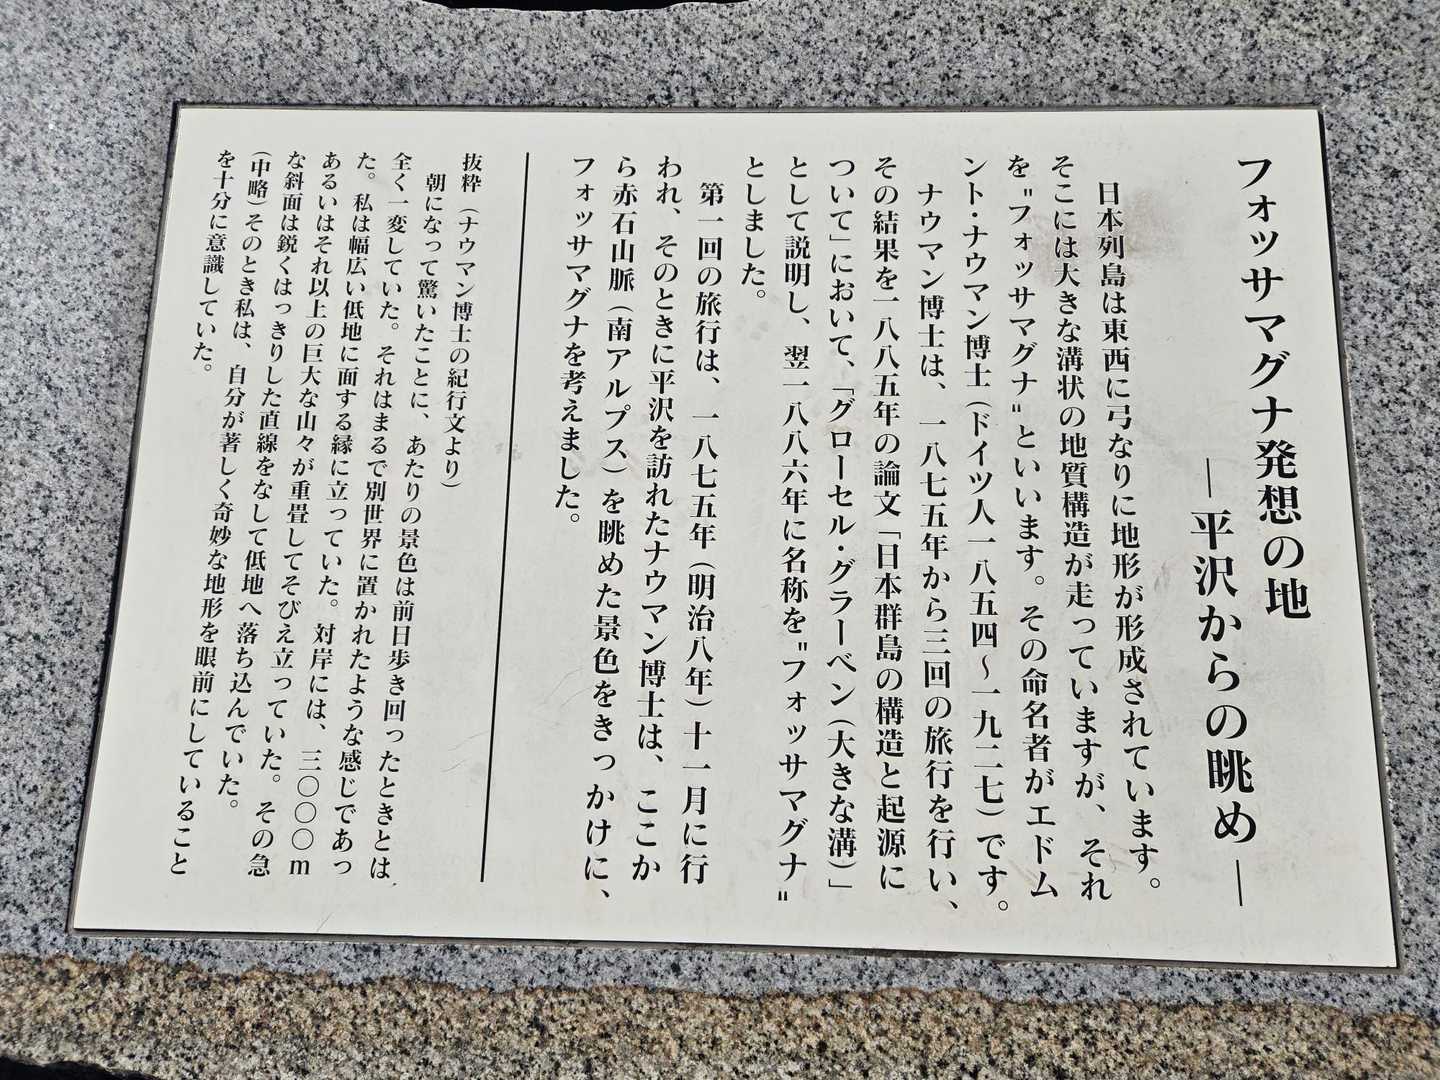 フォッサマグナ発想の地
―平沢からの眺め―
日本列島は東西に弓なりに地形が形成されています。
そこには大きな溝状の地質構造が走っていますが、それ
を"フォッサマグナ"といいます。その命名者がエドム
ント・ナウマン博士(ドイツ人一八五四～一九二七)です。
ナウマン博士は、一八七五年から三回の旅行を行い、
その結果を一八八五年の論文「日本群島の構造と起源に
ついて」において、「グローセル・グラーベン(大きな溝)」
として説明し、翌一八八六年に名称を"フォッサマグナ"
としました。
第一回の旅行は、一八七五年(明治八年)十一月に行
われ、そのときに平沢を訪れたナウマン博士は、ここか
ら赤石山脈(南アルプス)を眺めた景色をきっかけに、
フォッサマグナを考えました。
抜粋(ナウマン博士の紀行文より)
朝になって驚いたことに、あたりの景色は前日歩き回ったときとは、
全く一変していた。それはまるで別世界に置かれたような感じであっ
た。私は幅広い低地に面する縁に立っていた。対岸には、三〇〇〇m
あるいはそれ以上の巨大な山々が重畳してそびえ立っていた。その急
な斜面は鋭くはっきりした直線をなして低地へ落ち込んでいた。
(中略)そのとき私は、自分が著しく奇妙な地形を眼前にしていること
を十分に意識していた。